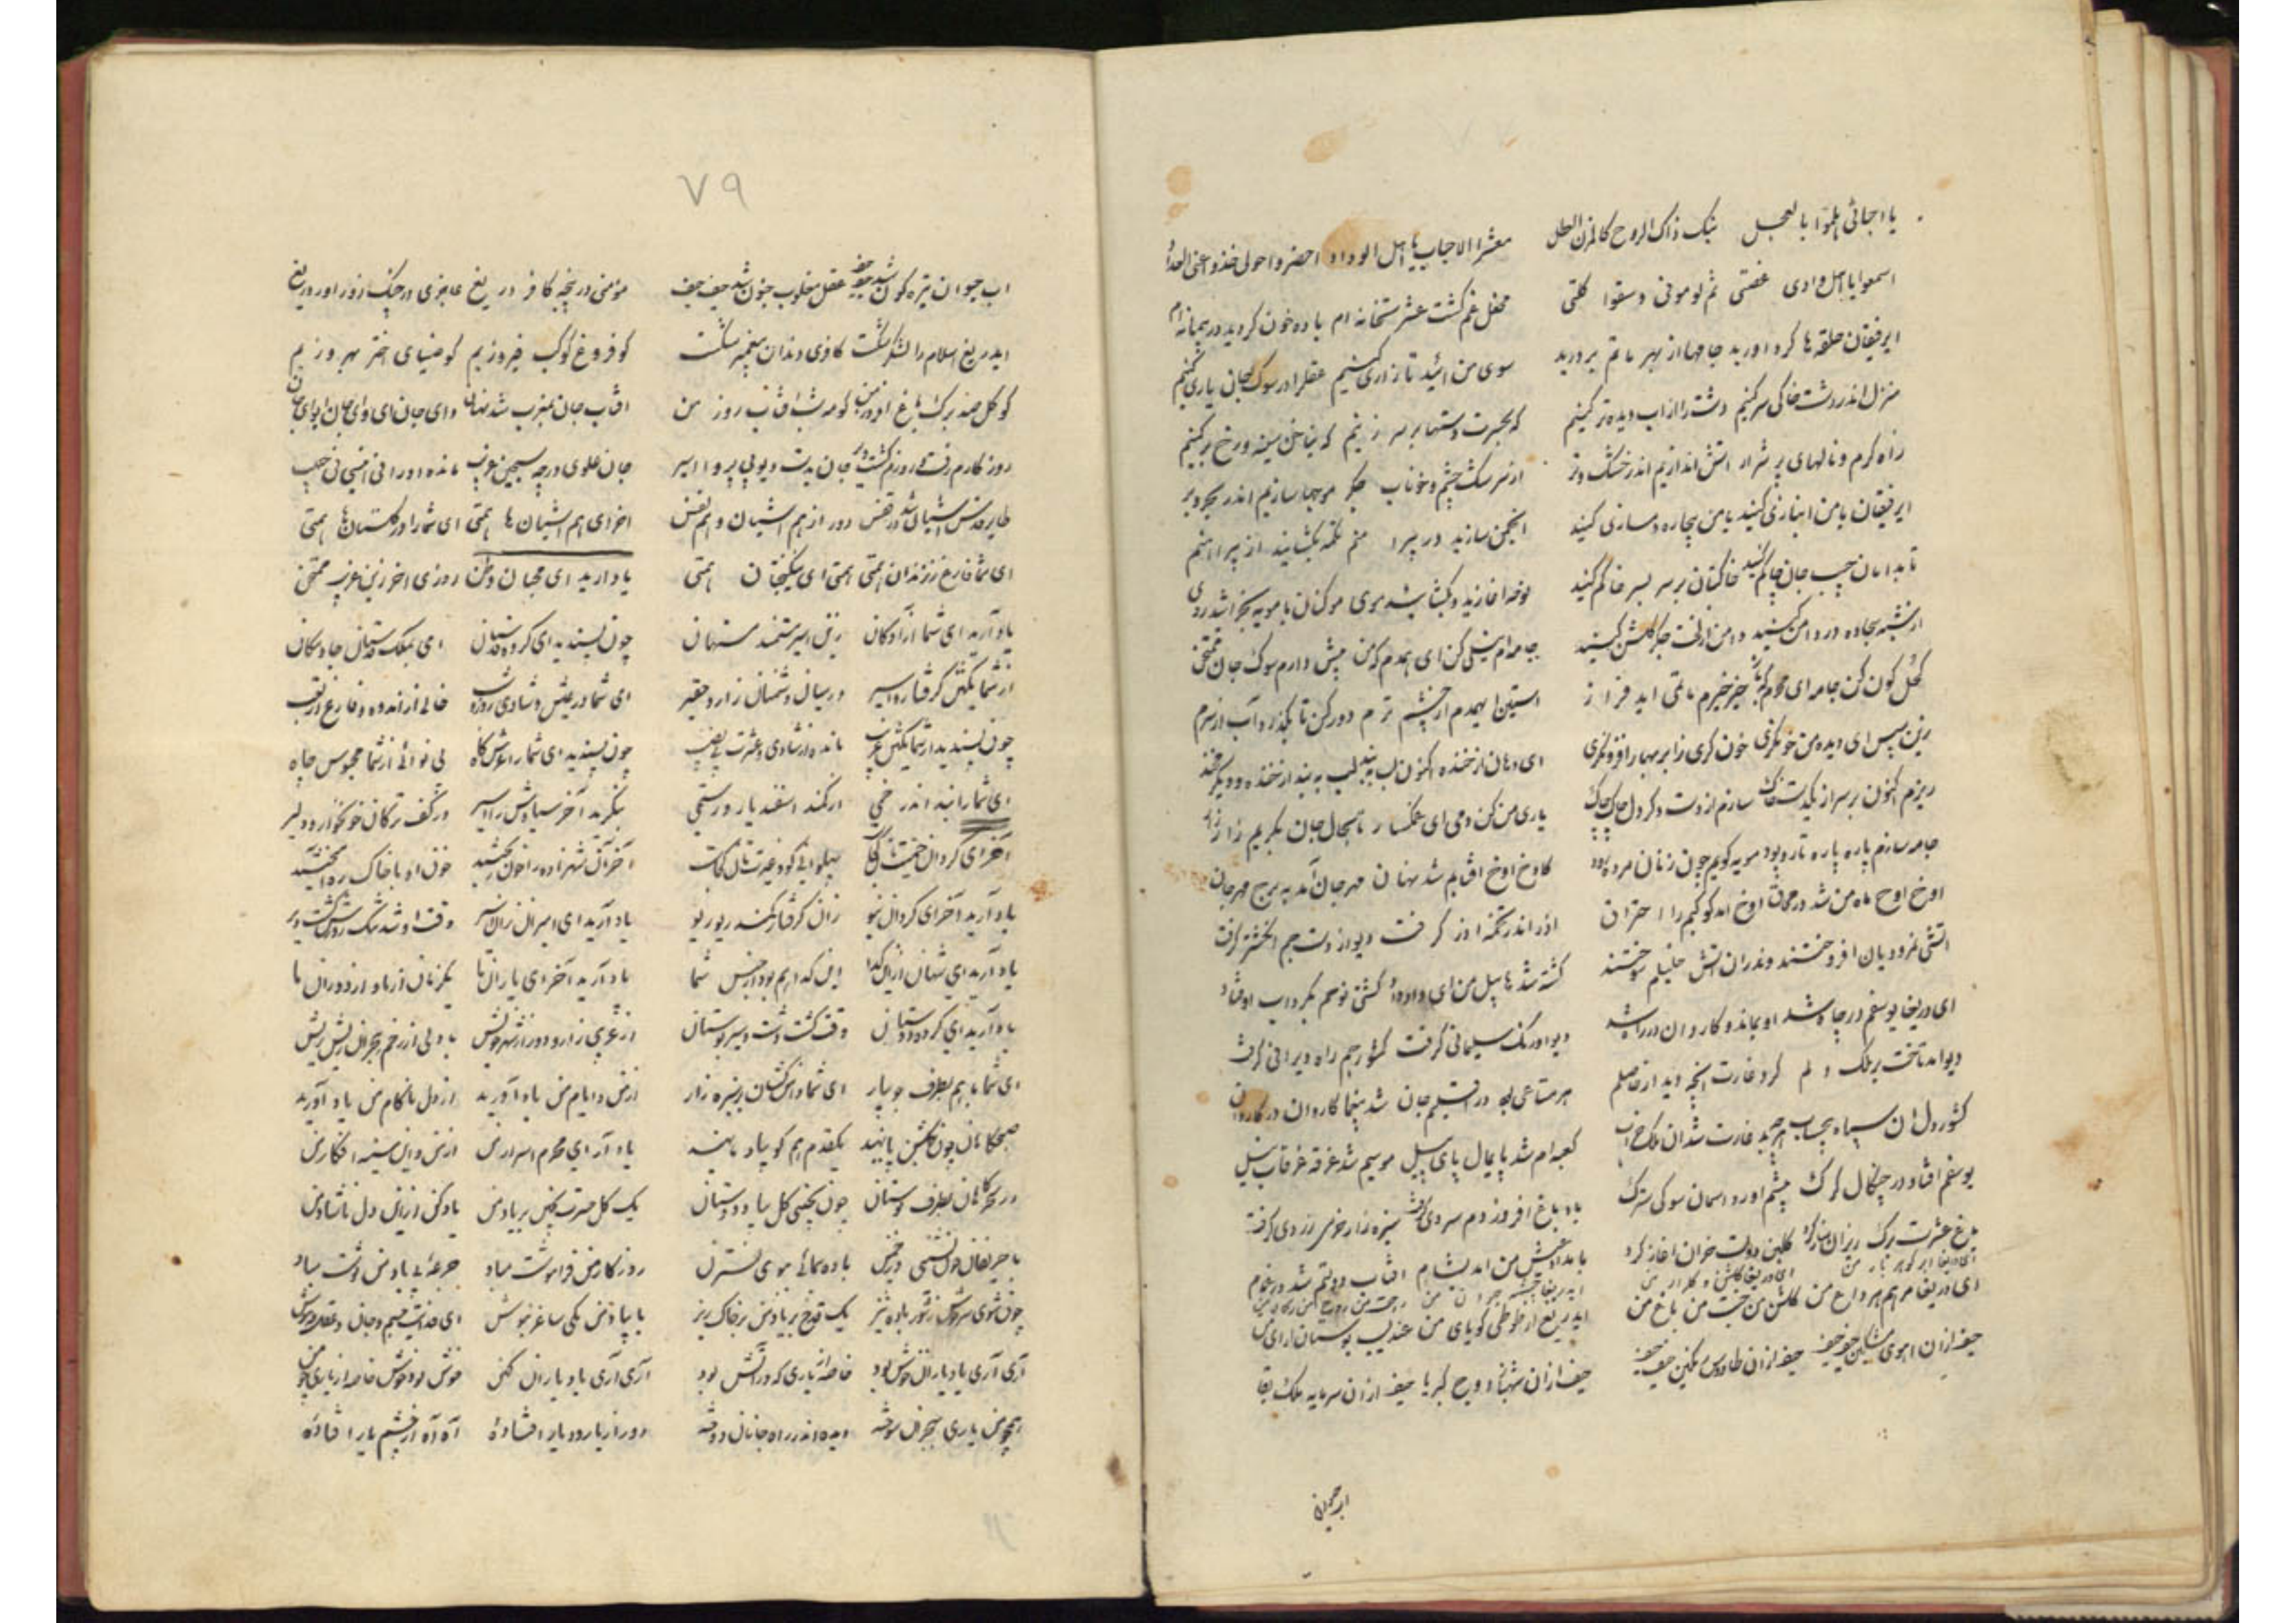 یا احبائی هلموا بالعجل نبک ذاک الروح کالمزن الهطل معشر الاحباب یا اهل الوداد احضروا حولی خذوا عنی
اسمعوا یا اهل وادی غصتی ثم لومونی و سقوا کلتی محفل غم گشت عشرتخانه ام باده خون گردید در پیمانه ام
ای رفیقان حلقه ها گرد اورید جامها از بهر ماتم بردرید سوی من ائید تا زاری کنیم عقل را در سوک جان یاری کنیم
منزل اندر دشت خاکی سر کنیم دشت را از اب دیده تر کنیم که بحسرت دستها بر سر زنیم که بناخن سینه و رخ برکنیم
زاه گرم و نالهای پر شرار اتش اندازیم اندر خشک و تر از سرشک چشم و خوناب جگر موجها سازیم اندر بحر و بر
ای رفیقان با من انبازی کنید با من بیچاره دمسازی کنید انجمن سازید در پیرا منم تکمه بگشایید از پیراهنم
تا بدامان جیب جان چاکم کنید خاکتان بر سر بسر خاکم کنید نوحه اغازید و بگشایید موی موکنان با مویه بخراشید روی
از سجاده در دامن کنید دامن از لخت جگر گلشن کنید جامه ام نیلی کن ای همدم که من پیش دارم سوک جان ممتحن
کحل گون کن جامه ای محرم خیز خیزم ماتمی اید فراز استین ای همدم از چشم ترم دور کن تا بگذرد آب از سرم
زین سپس ای دیده من خونگری خون گری زابر بهار افزون گری ای دهان از خنده اکنون لب ببند لب ببند از خنده و دیگر مخند
ریزم اکنون بر سر از یکدست خاک سازم از دست دگر دل چاک چاک یاری من کن دمی ای غمگسار تا بحال جان بگریم زار زار
جامه سازم پاره پاره تار و پود مویه گویم چون زنان مرده کاوخ اوخ افتابم شد نهان مهر جان آمد به برج مهرجان
اوخ اوخ ماه من شد در محاق اوخ امد کوکبم را احتراق اذر اندر تکمه اذر گرفت دیو از دست جم انگشتر گرفت
اتشی نمرودیان افروختند وندران اتش خلیلم سوختند کشته شد هابیل من ای داد داد کشتی نوحم بگرداب اوفتاد
ای دریغا یوسفم در چاه شد او بماند و کاروان در راه شد دیو اورنگ سلیمانی گرفت کشور جم راه ویرانی گرفت
دیو امد تاخت بر ملک دلم کرد غارت انچه دید از حاصلم هر متاعی بد در اقلیم جان شد بیغما کاروان در کاروان
کشور دل زان سپاه بیحساب هر چه بد غارت شد ان ملک خراب کعبه ام شد پایمال پای پیل موسیم شد غرقه غرقاب نیل
یوسفم افتاد در چنگال گرگ پیشم اورد اسمان سوکی سترگ باد باغ افروز دم سردی گرفت سبزه زار خرمی زردی گرفت
باغ عشرت برگ ریزان ساز کرد گلبن دولت خزان اغاز کرد بامداد عیش من امد بشام افتاب دولتم شد در غمام
ای دریغا ابر گوهر بار من ای دریغا گلشن و گلزار من
ای دریغا مرهم هر داغ من گلشن من جنت من باغ من ایدریغ از طوطی گویای من عندلیب بوستان ارای من
حیف از ان اهوی مشکین حیف حیف حیف از ان طاوس رنگین حیف حیف حیف از ان شهباز دوح کبریا حیف از ان سرمایه ملک بقا
اب حیوان
۷۹
اب حیوان تیره گون شد حیف حیف عقل مغلوب جنون شد حیف حیف مؤمنی در پنجه کافر دریغ عاجزی در چنگ زوراور دریغ
ایدریغ اسلام را لشکر شکست کافری دندان پیغمبر شکست کو فروغ کوکب فیروزیم کو ضیای اختر بهروزیم
کو گل صد برگ باغ افروز من کو مه شب افتاب روز من افتاب جان بمغرب شد نهان وای جان ای وای جان ای وای جان
روزگارم رفت و روزم گشت دیر جان بدست دیو بی پروا اسیر جان علوی در چه سجین غریب مانده
طایر قدس اشیانی شد در قفس دور از هم اشیان و هم نفس اخر ای هم اشیان ها همتی ای شما را در گلستان ها همتی
ای شما فارغ ز زندان همتی همتی ای نیکبختان همتی یاد ارید ای محبان وطن روزی اخر زین غریب ممتحن
یاد آرید ای شما آزادگان زین اسیر مستمند مستهان چون پسندید ای گروه قدسیان ای بملک قدستان جا و مکان
از شما یکتن گرفتار و اسیر در میان دشمنان زار و حقیر ای شما در عیش و شادی روز و شب خالی از اندوه و فارغ از تعب
چون پسندید از شما یکتن غریب مانده از شادی و عشرت بی نصیب چون پسندید ای شما را عرش گاه بی نوائی از شما محبوس چاه
ای شما را بند اندر خمی از کمند اسفندیار و رستمی بنگرید آخر سیاوش را اسیر در کف ترکان خونخوار و دلیر
آخر ای گردان پهلوانی کو و غیرتتان کجاست آخر آن شهزاده را خون خون او با خاک ره
یاد آرید آخر ای گردان نیو زان گرفتار کمند ریو ریو یاد آرید ای امیران زان اسیر وقت او شد تنگ روزش گشت دیر
یاد آرید ای شهان از این گدا این که او هم بود از جنس شما یاد آرید آخر ای یاران ما یکزمان از ما و از دوران ما
یاد آرید ای گروه دوستان وقت گشت دشت و سیر بوستان از غریبی زار و دور از شهر خویش با دلی از زخم هجران ریش ریش
ای شما با هم بطرف جویبار ای شما دامن کشان بر سبزه زار از من و ایام من یاد آورید از دل ناکام من یاد آورید
صبحگاهان چون بگلشن پا نهید یکقدم هم کو بیاد ما نهید یاد آر ای محرم اسرار من از من و این سینه افکار من
در سحرگاهان بطرف بوستان چون بچینی گل بیاد دوستان یک گل حسرت بچین بر یاد من یاد کن از این دل ناشاد من
با حریفان چون نشینی در چمن باده پیمائی ببوی نسترن روزگار من فراموشت مباد جرعه ای بی یاد من نوشت مباد
چون شوی سرخوش ز شور باده نیز یک قدح بر یاد من بر خاک ریز یا بیاد من یکی ساغر بنوش ای فدایت جسم و جان و عقل و هوش
آری آری یاد یاران خوش بود خاصه از یاری که در آتش بود آری آری یاد یاران کهن خوش بود خوش خاصه از یاری چو من
همچو من یاری بهجران سوخته دیده اندر راه جانان دوخته دور از یار و دیار افتاده آه آه از چشم یار افتاده